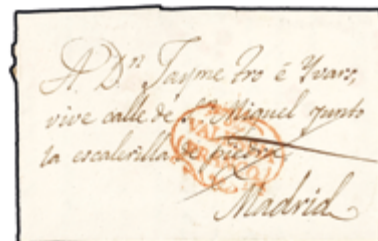 A Dn Jayme Pro é Yvars,
vive calle de Sn Miguel junto
la escalerilla de piedra
Madrid